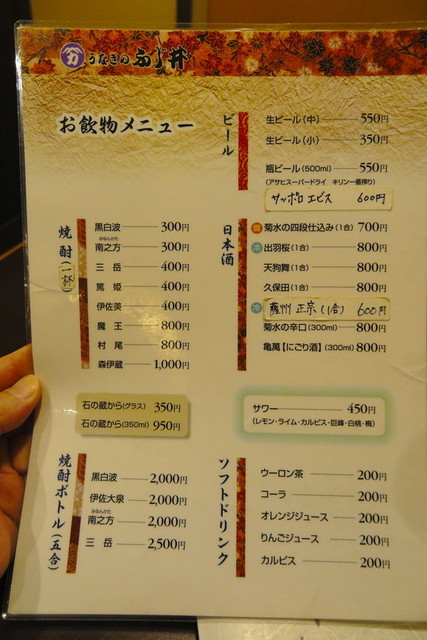 カ
うなぎの ふじ井
お飲物メニュー
ビール
生ビール(中) 550円
生ビール(小) 350円
瓶ビール(500ml) 550円
(アサヒスーパードライ キリン一番搾り)
サッポロ エビス 600円
焼酎(一杯)
黒白波 300円
みなんかた
南之方 300円
三岳 400円
篤姫 400円
伊佐美 400円
魔王 800円
村尾 800円
森伊蔵 1,000円
日本酒
菊水の四段仕込み(1合) 700円
冷 出羽桜(1合) 800円
天狗舞(1合) 800円
久保田(1合) 800円
冷 薩州 正宗(1合) 600円
菊水の辛口(300ml) 800円
亀萬【にごり酒】(300ml) 800円
石の蔵から(グラス) 350円
石の蔵から(350ml) 950円
サワー 450円
(レモン・ライム・カルピス・巨峰・白桃・梅)
焼酎ボトル(五合)
黒白波 2,000円
伊佐大泉 2,000円
みなんかた
南之方 2,000円
三岳 2,500円
ソフトドリンク
ウーロン茶 200円
コーラ 200円
オレンジジュース 200円
りんごジュース 200円
カルピス 200円